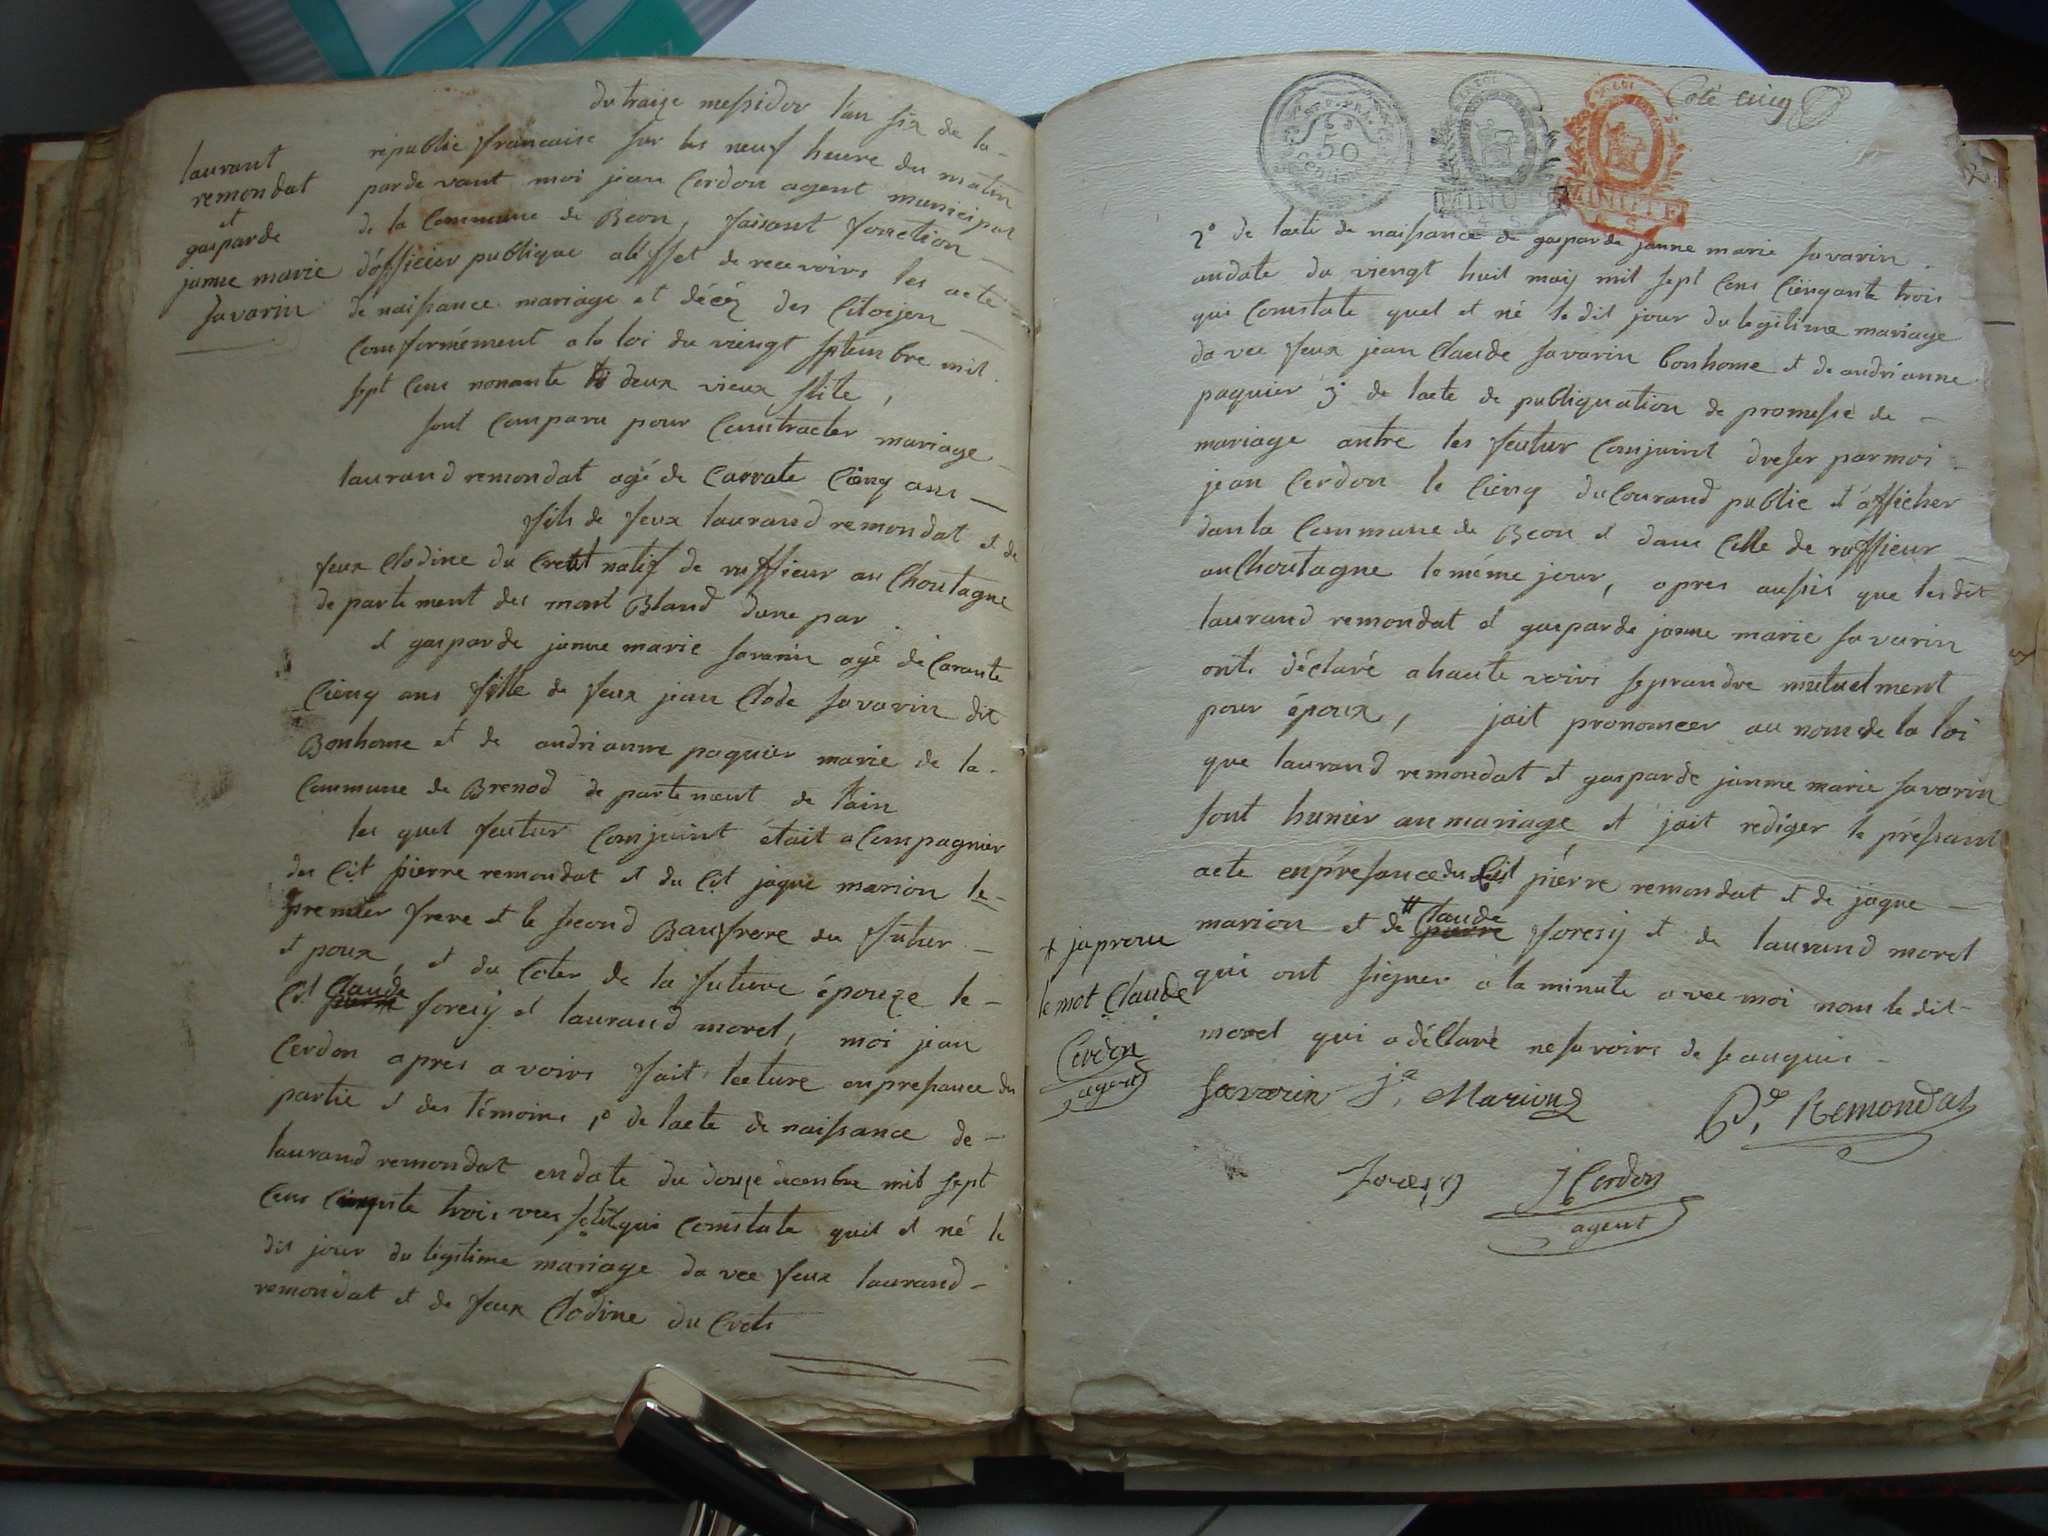 laurant
remondat
et
gasparde
janne marie
savarin
du traize messidor l'an six de la
republic francaise sur les neuf heure du matin
parde vant moi jean Cerdon agent municipal
de la Commune de Beon, faisant fonction
d'officier publique aléffet de recevoirs les acte
de naissance mariage et décéz des Citoijen
Comformément a la loi du viengt septembre mil
sept Cens nonante deux vieux stile,
sont Comparu pour Comtracter mariage
laurand remondat agé de Carrate Cienq ans
fils de feux laurand remondat et de
feux Clodine du Crett natif de ruffieux au Choutagne
de parte ment des mont Bland dune par
et gasparde janne marie savarin agé de Carante
Cienq ans fille de feux jean Clode savarin dit
Bonhome et de andrianne paquier marie de la
Commune de Brenod de parte ment de l'ain
les quel feutur Comjoint était a Compagnier
du Cit pierre remondat et du Cit jaque marion le
premier frere et le second Baufrere du futur
et poux, et du Coter de la future épouze le
Cit Claude foresij et laurand morel, moi jean
Cerdon apres avoirs fait lecture en presance des
partie et des témoins 1° de lacte de naissance de
laurand remondat en date du douze decenbre mil sept
Cens trois qui Comstate quil et né le
dit jour du legitime mariage da vec feux laurand
remondat et de feux Clodine du Crets
Coté cinq
50
MINUTE
MINUTE
2° de lacte de naissance de gasparde janne marie savarin
andate du viengt huit maij mil sept Cens Ciengante trois
qui Comstate quel et né le dit jour du legitime mariage
da vec feux jean Claude savarin bonhome et de andrianne
paquier 3° de lacte de publiquation de promesse de
mariage antre les feutur Comjoint dreser parmoi
jean Cerdon le Cienq du Courand public et afficher
dans la Commune de Beon et dans Celle de ruffieux
au Choutagne le même jour, apres aussis que les dit
laurand remondat et gasparde janne marie savarin
onts déclaré a haute voirs seprandre mutuelment
pour époux, jait pronomcer au nom de la loi
que laurand remondat et gasparde janne marie savarin
sont hunier an mariage, et jait rediger le présant
acte en présance du Cit pierre remondat et de jaque
marion et de Claude foresij et de laurand morel
qui ont signer à la minute avec moi nom le dit
morel qui a déclaré ne savoirs de se anquis
+ japrouve
le mot Claude
Cerdon
agent
Savarin j.e Marion
P.e Remondat
Foresy
J Cerdon
agent